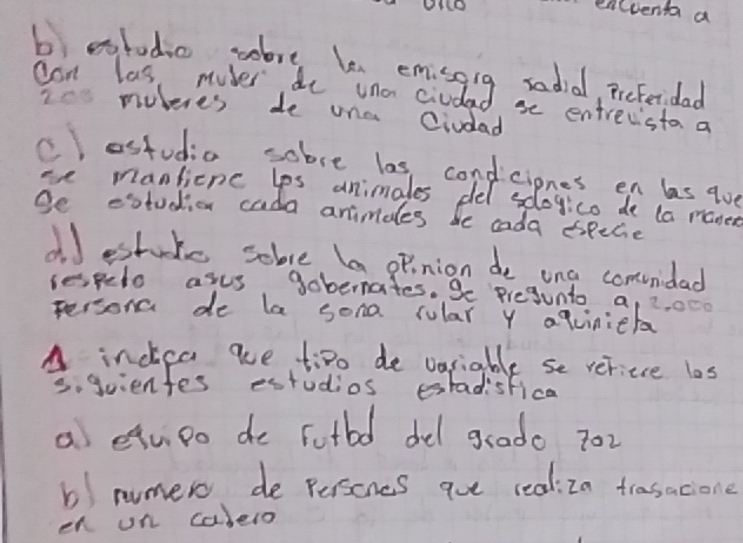 encuenta a
b) estudio sobre la emisora radial preferidad
Con las muler de una ciudad se entrevista a
200 muleres de una Ciudad
c) estudio sobre las condiciones en las que
se mantiene los animales del sologico de la
Se estudian cada animales de cada especie
d) estudio sobre la opinion de una comunidad
respeto asus gobernates. Se pregunto a 2.000
persona de la sona rular y aquinieta
1 indica que tipo de variable se refiere los
siguientes estudios estadistica
a) equipo de futbol del grado 702
b) numero de persones que realiza trasacione
en un calero